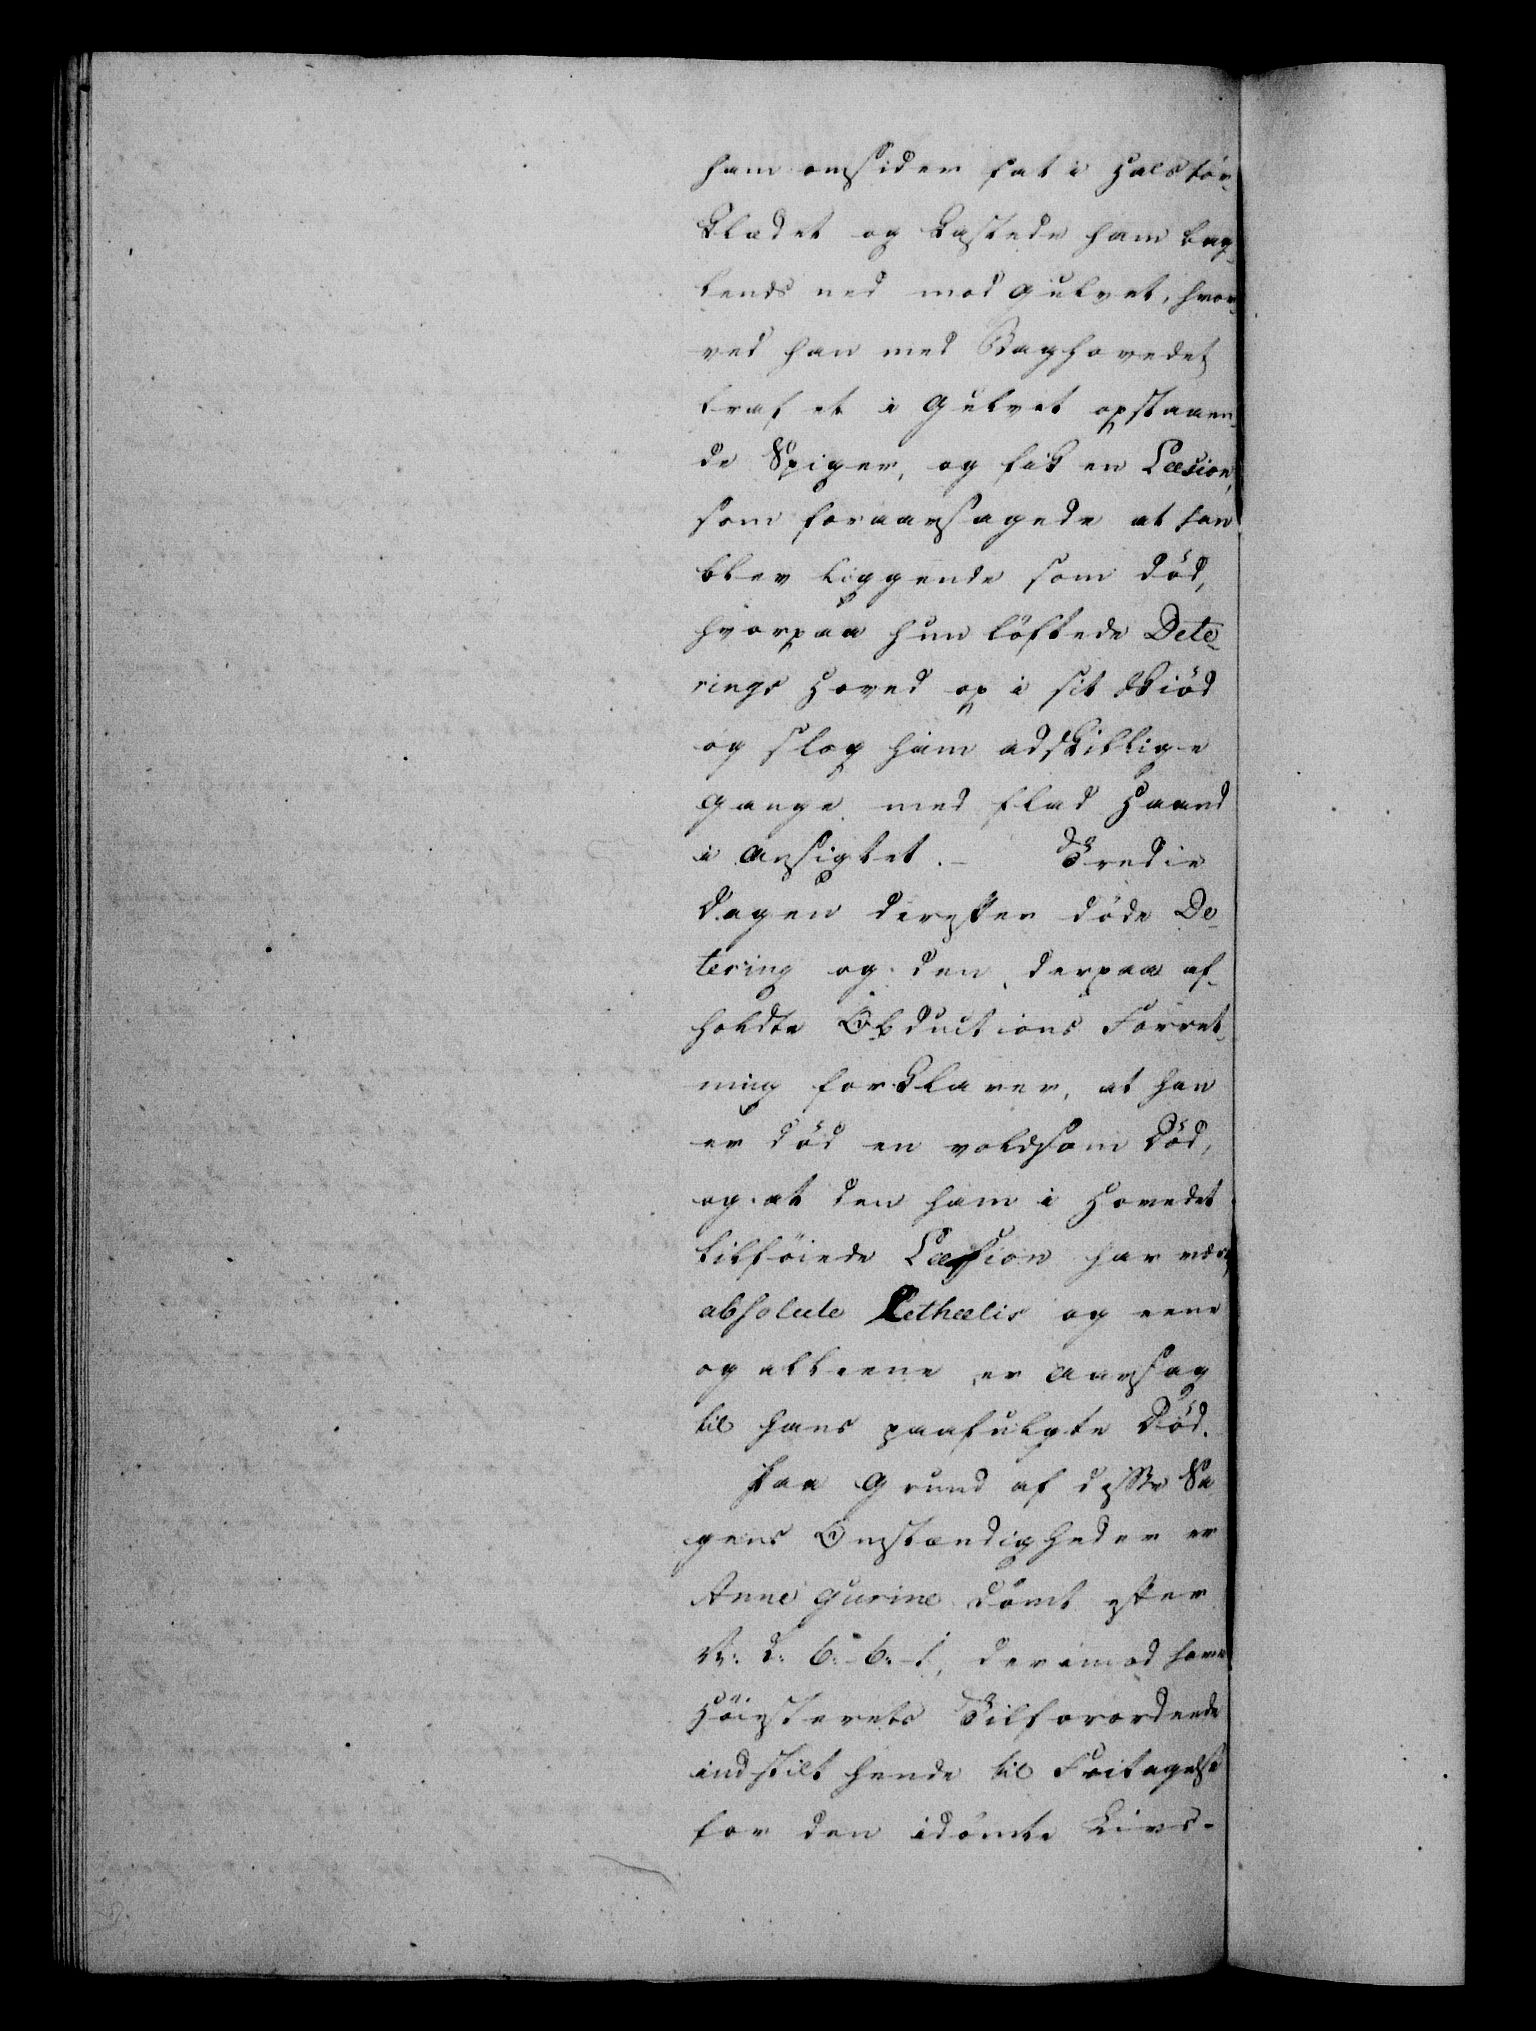 ham omsider fat i Halstør-
klædet og kastede ham bag-
lends ned mod Gulvet, hvor-
ved han med Baghovedet
traf et i Gulvet opstaaen-
de Spiger, og fik en Læsion,
som foraarsagede at han
blev liggende som død,
hvorpaa hun löftede Dete-
rings Hoved op i sit Skiød
og slog ham adskillige
Gange med flad Haand
i Ansigtet. – Tredie
Dagen derefter døde De-
tering og den derpaa af-
holdte Obductions Forret-
ning forklarer, at han
er død en voldsom Død,
og at den ham i Hovedet
tilföiede Læsion har være
absolute Lethalis og eene
og alleene er Aarsag
til hans paafulgte Död.
Paa Grund af disse Sa
gens Omstændigheder er
Anne Gurine dömt efter
N: L: 6.-6.-1, derimod have
Höiesterets Tilforordnede
indstilt hende til Fritagelse
for den idömte Livs-